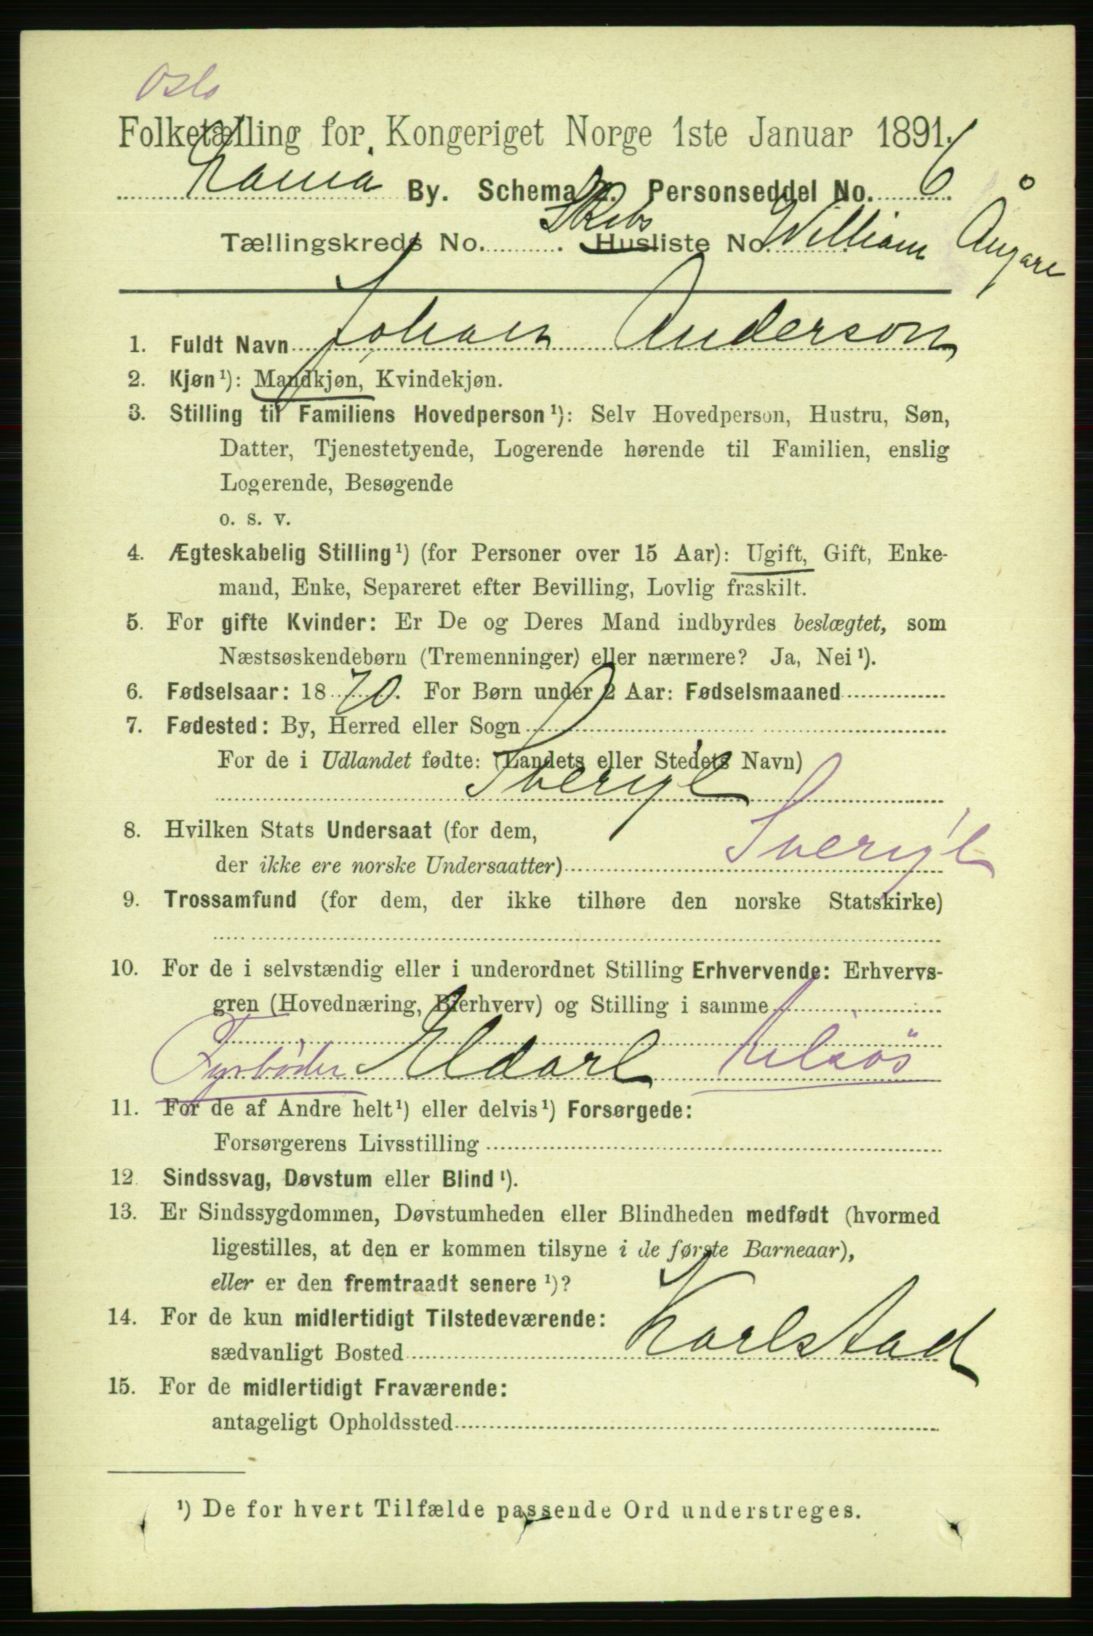 Oslo
Folketælling for Kongeriget Norge 1ste Januar 1891.
By. Schema Personseddel No. 6
Tællingskreds No. . Skibs Husliste No. William Ångare
1. Fuldt Navn Johan Anderson
2. Kjøn¹): Mandkjøn, Kvindekjøn.
3. Stilling til Familiens Hovedperson¹): Selv Hovedperson, Hustru, Søn,
Datter, Tjenestetyende, Logerende hørende til Familien, enslig
Logerende, Besøgende
o. s. v.
4. Ægteskabelig Stilling¹) (for Personer over 15 Aar): Ugift, Gift, Enke-
mand, Enke, Separeret efter Bevilling, Lovlig fraskilt.
5. For gifte Kvinder: Er De og Deres Mand indbyrdes beslægtet, som
Næstsøskendebørn (Tremenninger) eller nærmere? Ja, Nei¹).
6. Fødselsaar: 1870. For Børn under 2 Aar: Fødselsmaaned
7. Fødested: By, Herred eller Sogn
For de i Udlandet fødte: (Landets eller Stedets Navn)
Sverige
8. Hvilken Stats Undersaat (for dem,
der ikke ere norske Undersaatter) Sverige
9. Trossamfund (for dem, der ikke tilhøre den norske Statskirke)
10. For de i selvstændig eller i underordnet Stilling Erhvervende: Erhvervs-
gren (Hovednæring, Bierhverv) og Stilling i samme
Fyrbøder Eldarl tilsøs
11. For de af Andre helt¹) eller delvis¹) Forsørgede:
Forsørgerens Livsstilling
12. Sindssvag, Døvstum eller Blind¹).
13. Er Sindssygdommen, Døvstumheden eller Blindheden medfødt (hvormed
ligestilles, at den er kommen tilsyne i de første Barneaar),
eller er den fremtraadt senere¹)?
14. For de kun midlertidigt Tilstedeværende:
sædvanligt Bosted Karlstad
15. For de midlertidigt Fraværende:
antageligt Opholdssted
¹) De for hvert Tilfælde passende Ord understreges.